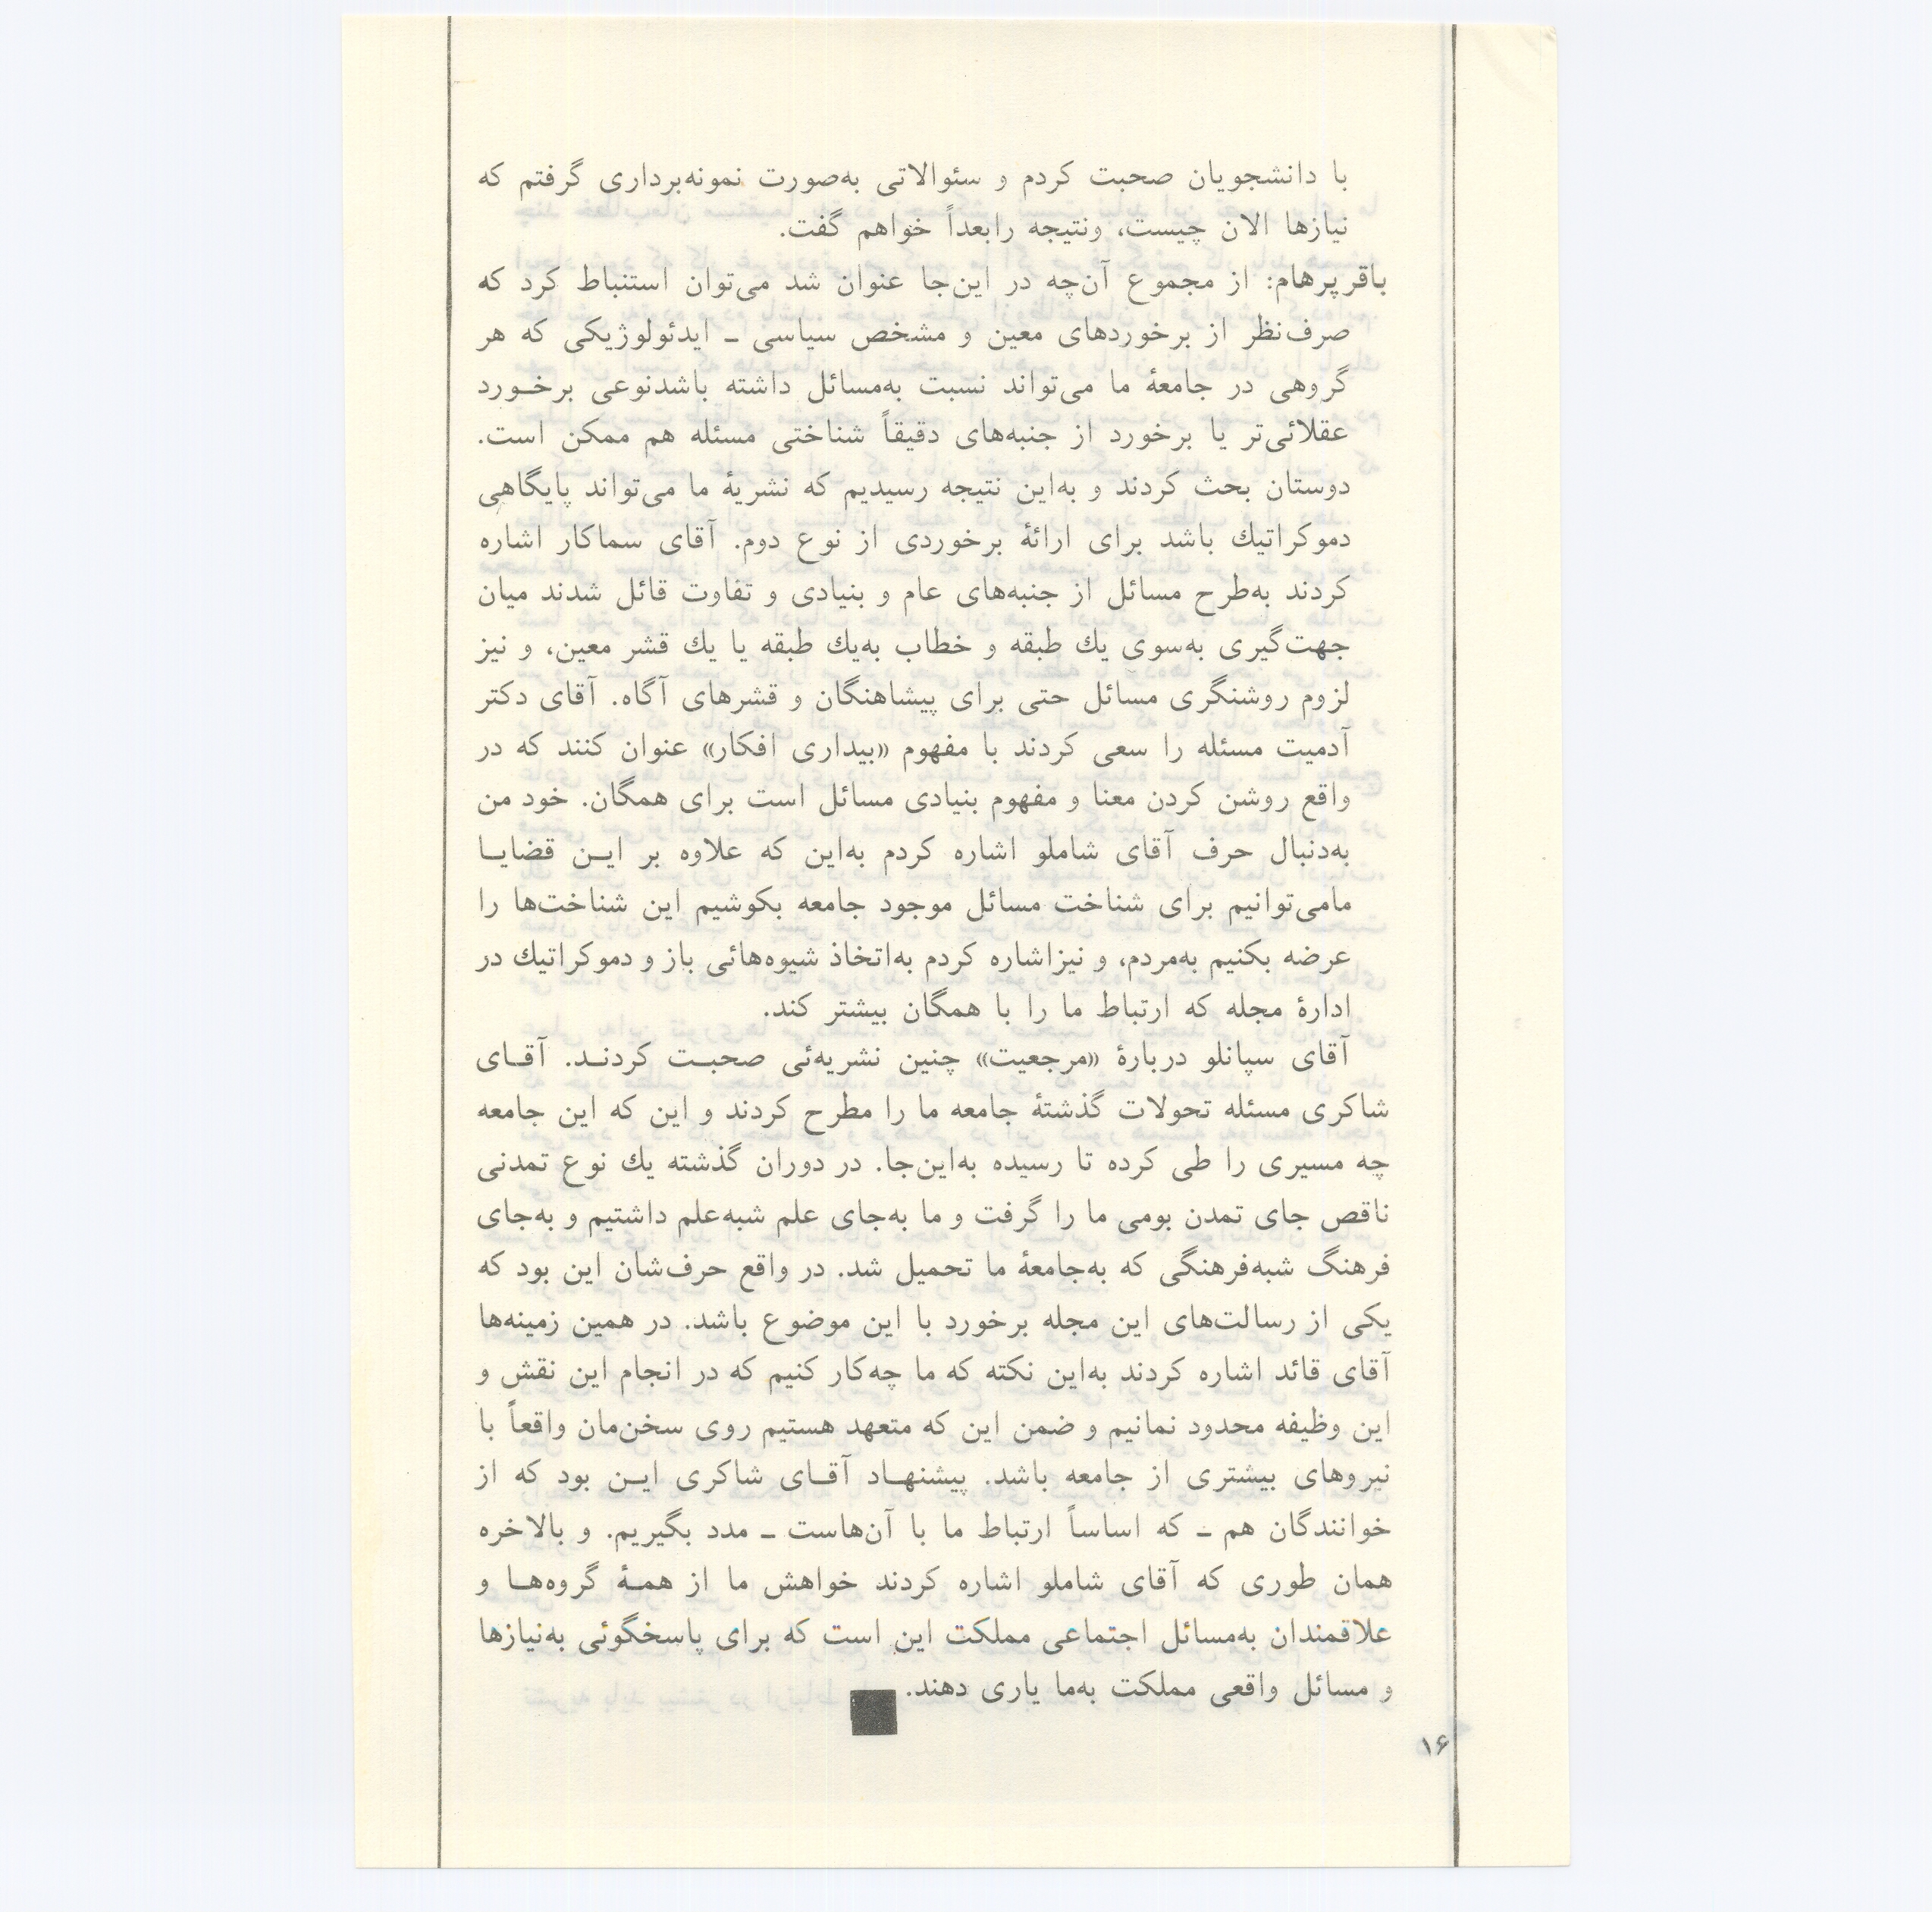 با دانشجویان صحبت کردم و سئوالاتی به‌صورت نمونه‌برداری گرفتم که
نیازها الان چیست، ونتیجه رابعداً خواهم گفت.
باقرپرهام: از مجموع آن‌چه در این‌جا عنوان شد می‌توان استنباط کرد که
صرف‌نظر از برخوردهای معین و مشخص سیاسی ـ ایدئولوژیکی که هر
گروهی در جامعهٔ ما می‌تواند نسبت به‌مسائل داشته باشدنوعی برخـورد
عقلائی‌تر یا برخورد از جنبه‌های دقیقاً شناختی مسئله هم ممکن است.
دوستان بحث کردند و به‌این نتیجه رسیدیم که نشریهٔ ما می‌تواند پایگاهی
دموکراتیك باشد برای ارائهٔ برخوردی از نوع دوم. آقای سماکار اشاره
کردند به‌طرح مسائل از جنبه‌های عام و بنیادی و تفاوت قائل شدند میان
جهت‌گیری به‌سوی یك طبقه و خطاب به‌یك طبقه یا یك قشر معین، و نیز
لزوم روشنگری مسائل حتی برای پیشاهنگان و قشرهای آگاه. آقای دکتر
آدمیت مسئله را سعی کردند با مفهوم «بیداری افکار» عنوان کنند که در
واقع روشن کردن معنا و مفهوم بنیادی مسائل است برای همگان. خود من
به‌دنبال حرف آقای شاملو اشاره کردم به‌این که علاوه بر ایـن قضایـا
مامی‌توانیم برای شناخت مسائل موجود جامعه بکوشیم این شناخت‌ها را
عرضه بکنیم به‌مردم، و نیزاشاره کردم به‌اتخاذ شیوه‌هائی باز و دموکراتیك در
ادارهٔ مجله که ارتباط ما را با همگان بیشتر کند.
آقای سپانلو دربارهٔ «مرجعیت» چنین نشریه‌ئی صحبـت کردنـد. آقـای
شاکری مسئله تحولات گذشتهٔ جامعه ما را مطرح کردند و این که این جامعه
چه مسیری را طی کرده تا رسیده به‌این‌جا. در دوران گذشته یك نوع تمدنی
ناقص جای تمدن بومی ما را گرفت و ما به‌جای علم شبه‌علم داشتیم و به‌جای
فرهنگ شبه‌فرهنگی که به‌جامعهٔ ما تحمیل شد. در واقع حرف‌شان این بود که
یکی از رسالت‌های این مجله برخورد با این موضوع باشد. در همین زمینه‌ها
آقای قائد اشاره کردند به‌این نکته که ما چه‌کار کنیم که در انجام این نقش و
این وظیفه محدود نمانیم و ضمن این که متعهد هستیم روی سخن‌مان واقعاً با
نیروهای بیشتری از جامعه باشد. پیشنهـاد آقـای شاکری ایـن بود که از
خوانندگان هم ـ که اساساً ارتباط ما با آن‌هاست ـ مدد بگیریم. و بالاخره
همان طوری که آقای شاملو اشاره کردند خواهش ما از همـهٔ گروه‌هـا و
علاقمندان به‌مسائل اجتماعی مملکت این است که برای پاسخگوئی به‌نیازها
و مسائل واقعی مملکت به‌ما یاری دهند.
۱۶